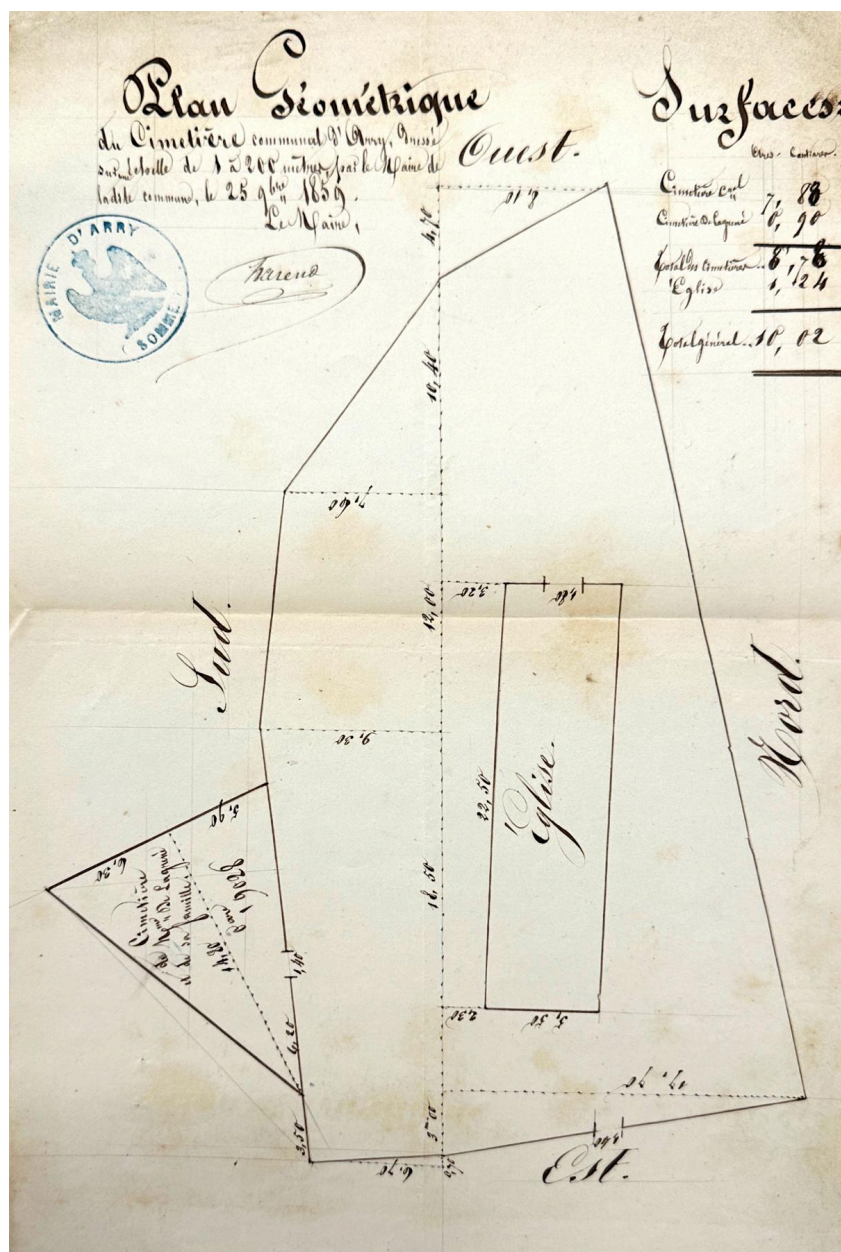 Plan Géométrique
du Cimetière communal d'Arry, dressé
sur une échelle de 1 à 200 mètres, par le Maire de
ladite commune, le 25 9bre 1859.
Le Maire,
MAIRIE D'ARRY
(SOMME)
Surfaces
Ares. Centiares.
Cimetière Cal 7, 88
Cimetière De Lagrené 0, 90
Total des Cimetières.. 8, 78
Église 1, 24
Total général.. 10, 02
Ouest.
8,10
4,70
10,40
7,60
3,20
1,80
12,00
Sud.
Nord.
9,30
Église.
22,50
5,90
6,30
Cimetière
de
et de sa famille.
14,20
0are 9028
18,50
1,40
6,20
2,30
5,50
17,70
3m00
3,50
1,40
6,70
Est.